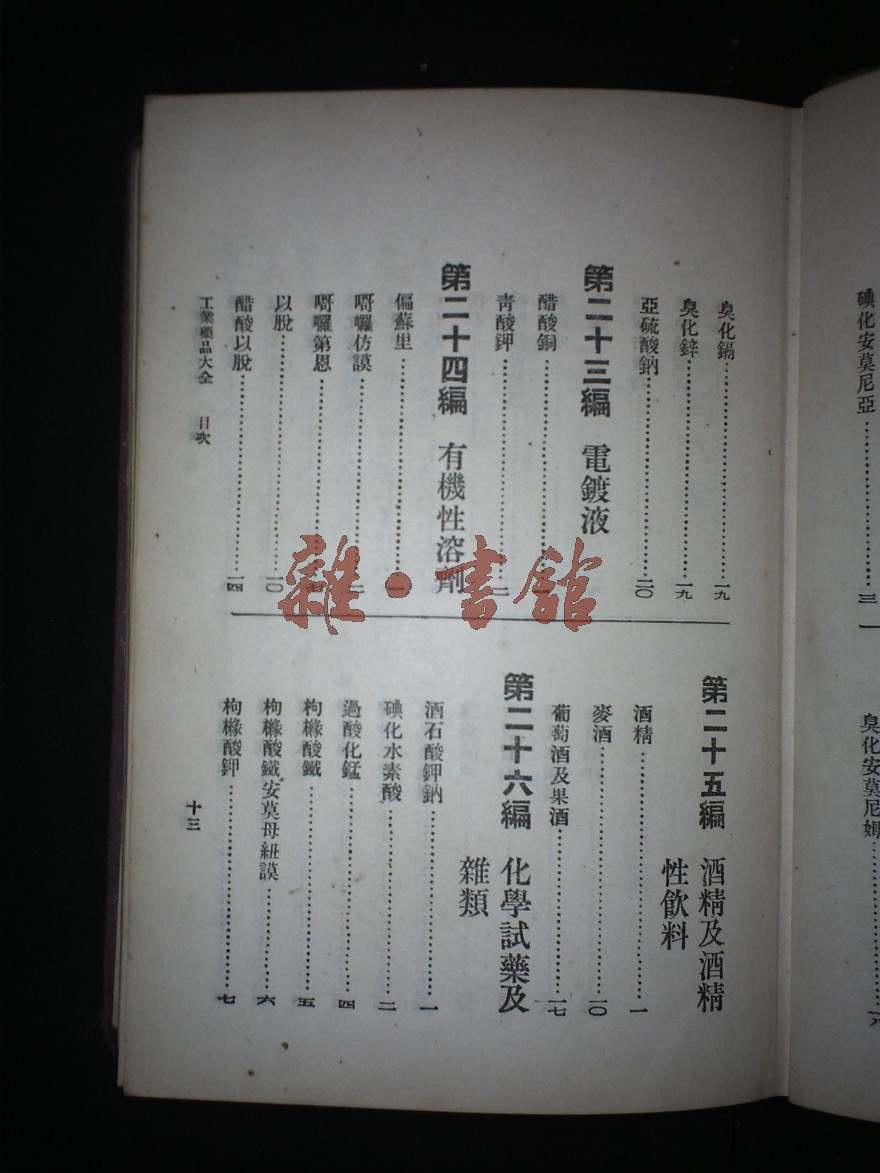 臭化鎘……一九
臭化鋅……一九
亞硫酸鈉……二〇
第二十三編 電鍍液
醋酸銅……
青酸鉀……二
第二十四編 有機性溶劑
偏蘇里……一
哥囉仿謨……二
哥囉第恩……七
以脫……一〇
醋酸以脫……一四
第二十五編 酒精及酒精
性飲料
酒精……一
麥酒……一〇
葡萄酒及果酒……一七
第二十六編 化學試藥及
雜類
酒石酸鉀鈉……一
碘化水素酸……二
過酸化錳……四
枸櫞酸鐵……五
枸櫞酸鐵安莫母紐謨……六
枸櫞酸鉀……七
工業藥品大全 目次
十三
碘化安莫尼亞……三
臭化安莫尼姆……一六
雜·書館